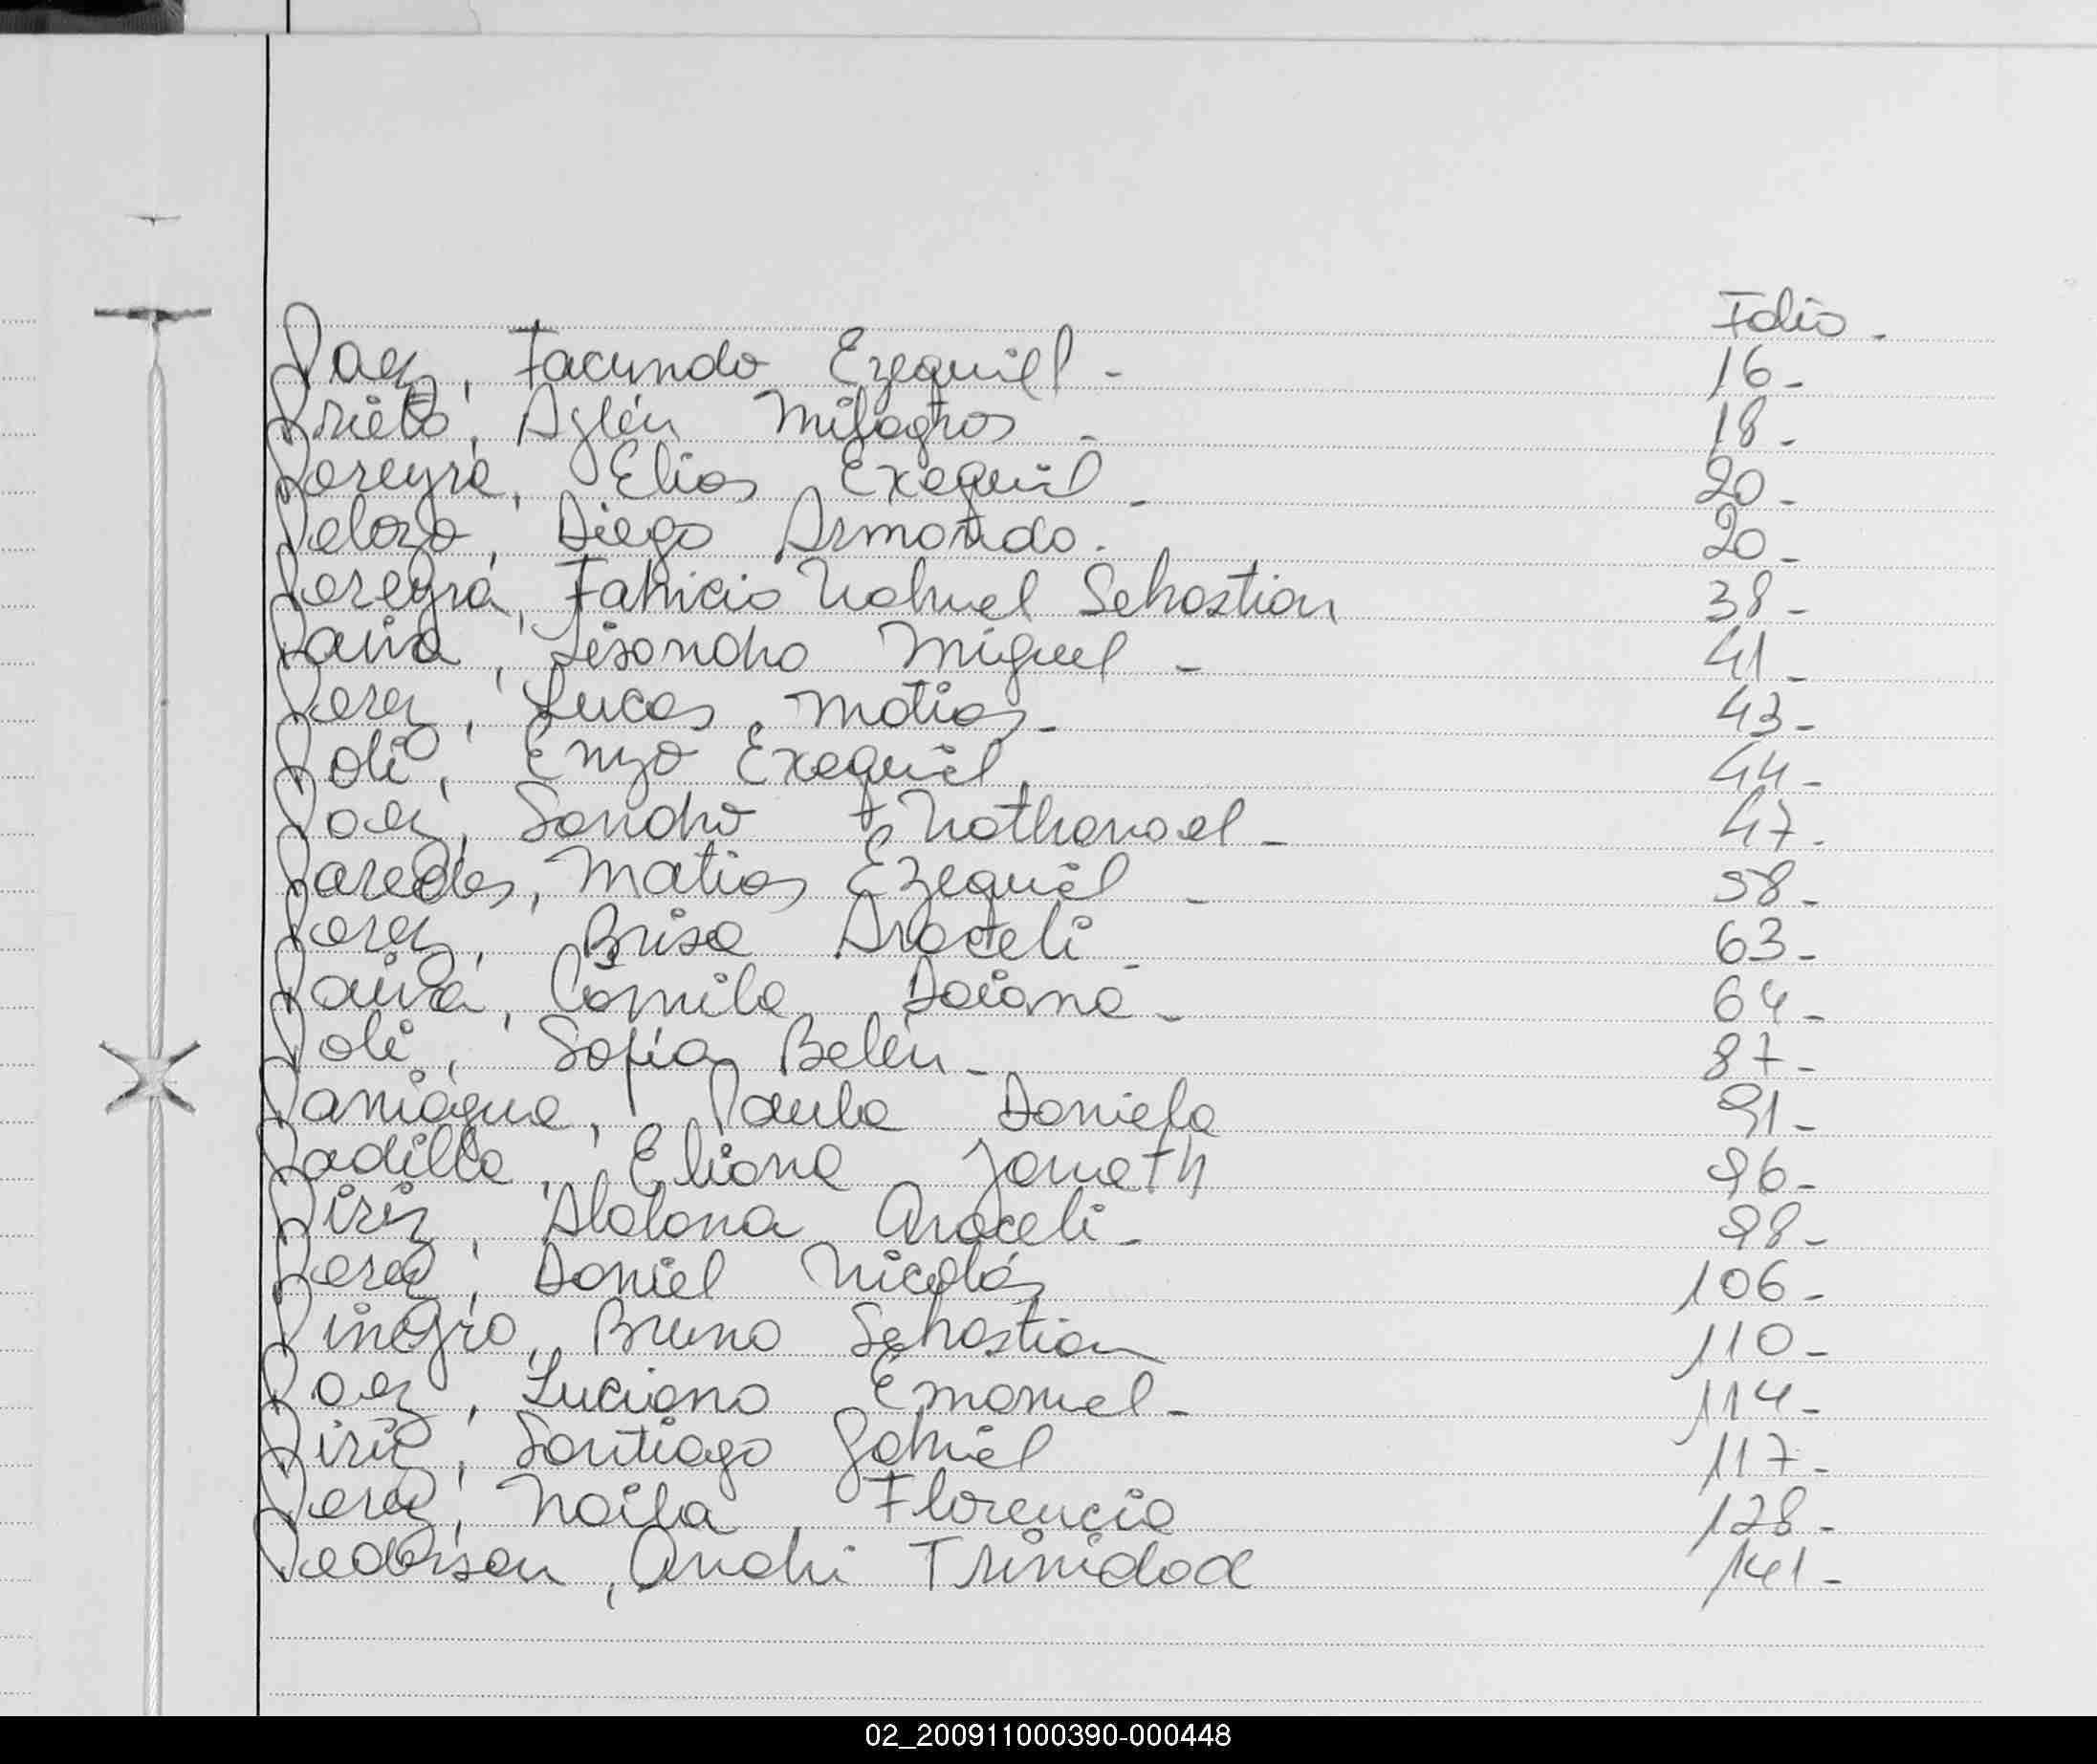 Folio -
Paez, Facundo Ezequiel - 16 -
Prieto, Aylén Milagros - 18 -
Pereyra, Elias Exequiel - 20 -
Pelozo, Diego Armando. 20 -
Pereyra, Fabricio Nahuel Sebastian 38 -
Paiva, Lisandro Miguel - 41 -
Perez, Lucas Matias - 43 -
Poli, Enzo Exequiel 44 -
Paez, Sandro Nathanael - 47 -
Paredes, Matias Ezequiel - 58 -
Perez, Brisa Araceli - 63 -
Paiva, Camila Daiana - 64 -
Poli, Sofía Belén - 87 -
Paniagua, Paula Daniela 91 -
Padilla, Eliana Janeth 96 -
Piriz, Aldana Araceli - 98 -
Perez, Daniel Nicolás 106 -
Bruno Sebastian 110 -
Paez, Luciano Emanuel - 114 -
Piriz, Santiago Gabriel 117 -
Perez, Naila, Florencia 128 -
Trinidad 141 -
02_200911000390-000448